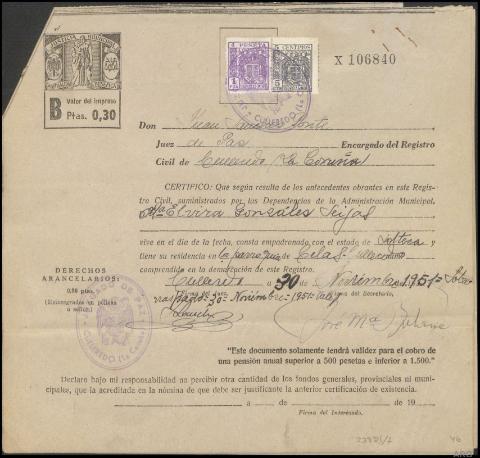 JUSTICIA MUNICIPAL
B Valor del impreso
Ptas. 0,30
1 PESETA
5 CENTIMOS
X 106840
Don Juan
Juez de Paz Encargado del Registro
Civil de Culleredo (La Coruña)
CERTIFICO: Que según resulta de los antecedentes obrantes en este Regis-
tro Civil, suministrados por las Dependencias de la Administración Municipal,
Elvira González Seijas
vive en el día de la fecha, consta empadronad con el estado de soltera y
tiene su residencia en la parroquia de Celas
comprendida en la demarcación de este Registro.
DERECHOS
ARANCELARIOS:
0,90 ptas.
(Reintegrados en póliza
o sello.)
Culleredo a 30 de Noviembre 1951
30-Noviembre-1951
del Secretario,
José Mª
JUZGADO DE PAZ
CULLEREDO (La Coruña)
"Este documento solamente tendrá validez para el cobro de
una pensión anual superior a 500 pesetas e inferior a 1.500."
Declaro bajo mi responsabilidad no percibir otra cantidad de los fondos generales, provinciales ni muni-
cipales, que la acreditada en la nómina de que debe ser justificante la anterior certificación de existencia.
a de de 19
Firma del Interesado.